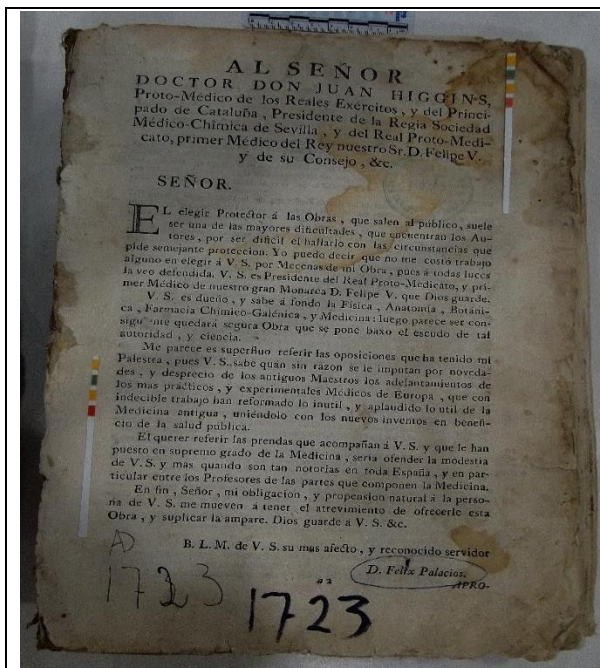 AL SEÑOR
DOCTOR DON JUAN HIGGINS,
Proto-Médico de los Reales Exércitos, y del Princi-
pado de Cataluña, Presidente de la Regia Sociedad
Médico-Chîmica de Sevilla, y del Real Proto-Medi-
cato, primer Médico del Rey nuestro Sr. D. Felipe V.
y de su Consejo, &c.
SEÑOR.
EL elegir Protector á las Obras, que salen al público, suele
ser una de las mayores dificultades, que encuentran los Au-
tores, por ser dificil el hallarlo con las circunstancias que
pide semejante proteccion. Yo puedo decir que no me costó trabajo
alguno en elegir á V. S. por Mecenas de mi Obra, pues á todas luces
la veo defendida. V. S. es Presidente del Real Proto-Medicato, y pri-
mer Médico de nuestro gran Monarca D. Felipe V. que Dios guarde.
V. S. es dueño, y sabe á fondo la Física, Anatomía, Botáni-
ca, Farmacia Chîmico-Galénica, y Medicina: luego parece ser con-
siguiente quedará segura Obra que se pone baxo el escudo de tal
autoridad, y ciencia.
Me parece es superfluo referir las oposiciones que ha tenido mi
Palestra, pues V. S. sabe quán sin razon se le imputan por noveda-
des, y desprecio de los antiguos Maestros los adelantamientos de
los mas prácticos, y experimentales Médicos de Europa, que con
indecible trabajo han reformado lo inutil, y aplaudido lo util de la
Medicina antigua, uniéndolo con los nuevos inventos en benefi-
cio de la salud pública.
El querer referir las prendas que acompañan á V. S. y que le han
puesto en supremo grado de la Medicina, sería ofender la modestia
de V. S. y mas quando son tan notorias en toda España, y en par-
ticular entre los Profesores de las partes que componen la Medicina.
En fin, Señor, mi obligacion, y propension natural á la perso-
na de V. S. me mueven á tener el atrevimiento de ofrecerle esta
Obra, y suplicar la ampare. Dios guarde á V. S. &c.
B. L. M. de V. S. su mas afecto, y reconocido servidor
D. Felix Palacios.
a 2
APRO-
AD
1723
1723